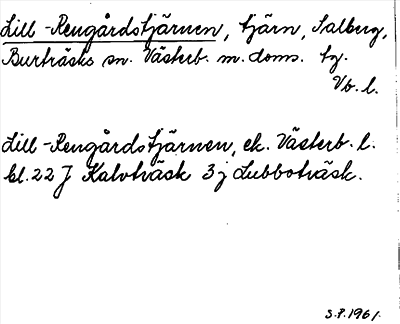 Lill-Rengårdstjärnen, tjärn, Salberg,
Burträsks sn. Västerb. m. doms. tg.
Vb. l.
Lill-Rengårdstjärnen, ek. Västerb. l.
bl. 22 J Kalvträsk 3 j Lubboträsk.
S.P. 1961.